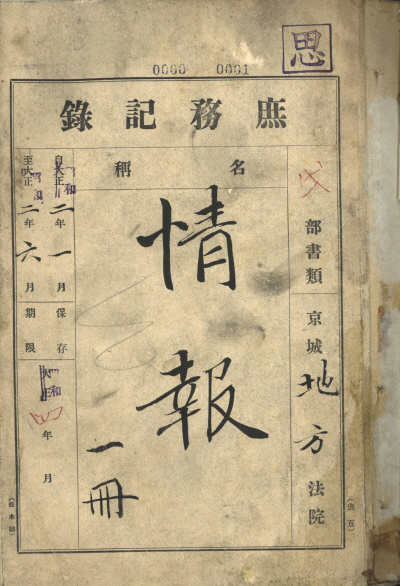 思
0000 0001
庶務記錄
部書類
京城地方法院
名稱
情報
一冊
自大正昭和二年一月
至大正昭和二年六月
保存期限
大正昭和四年 月